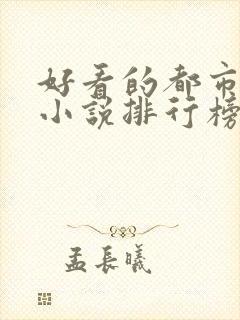 好看的都市
小说排行榜
孟長曦